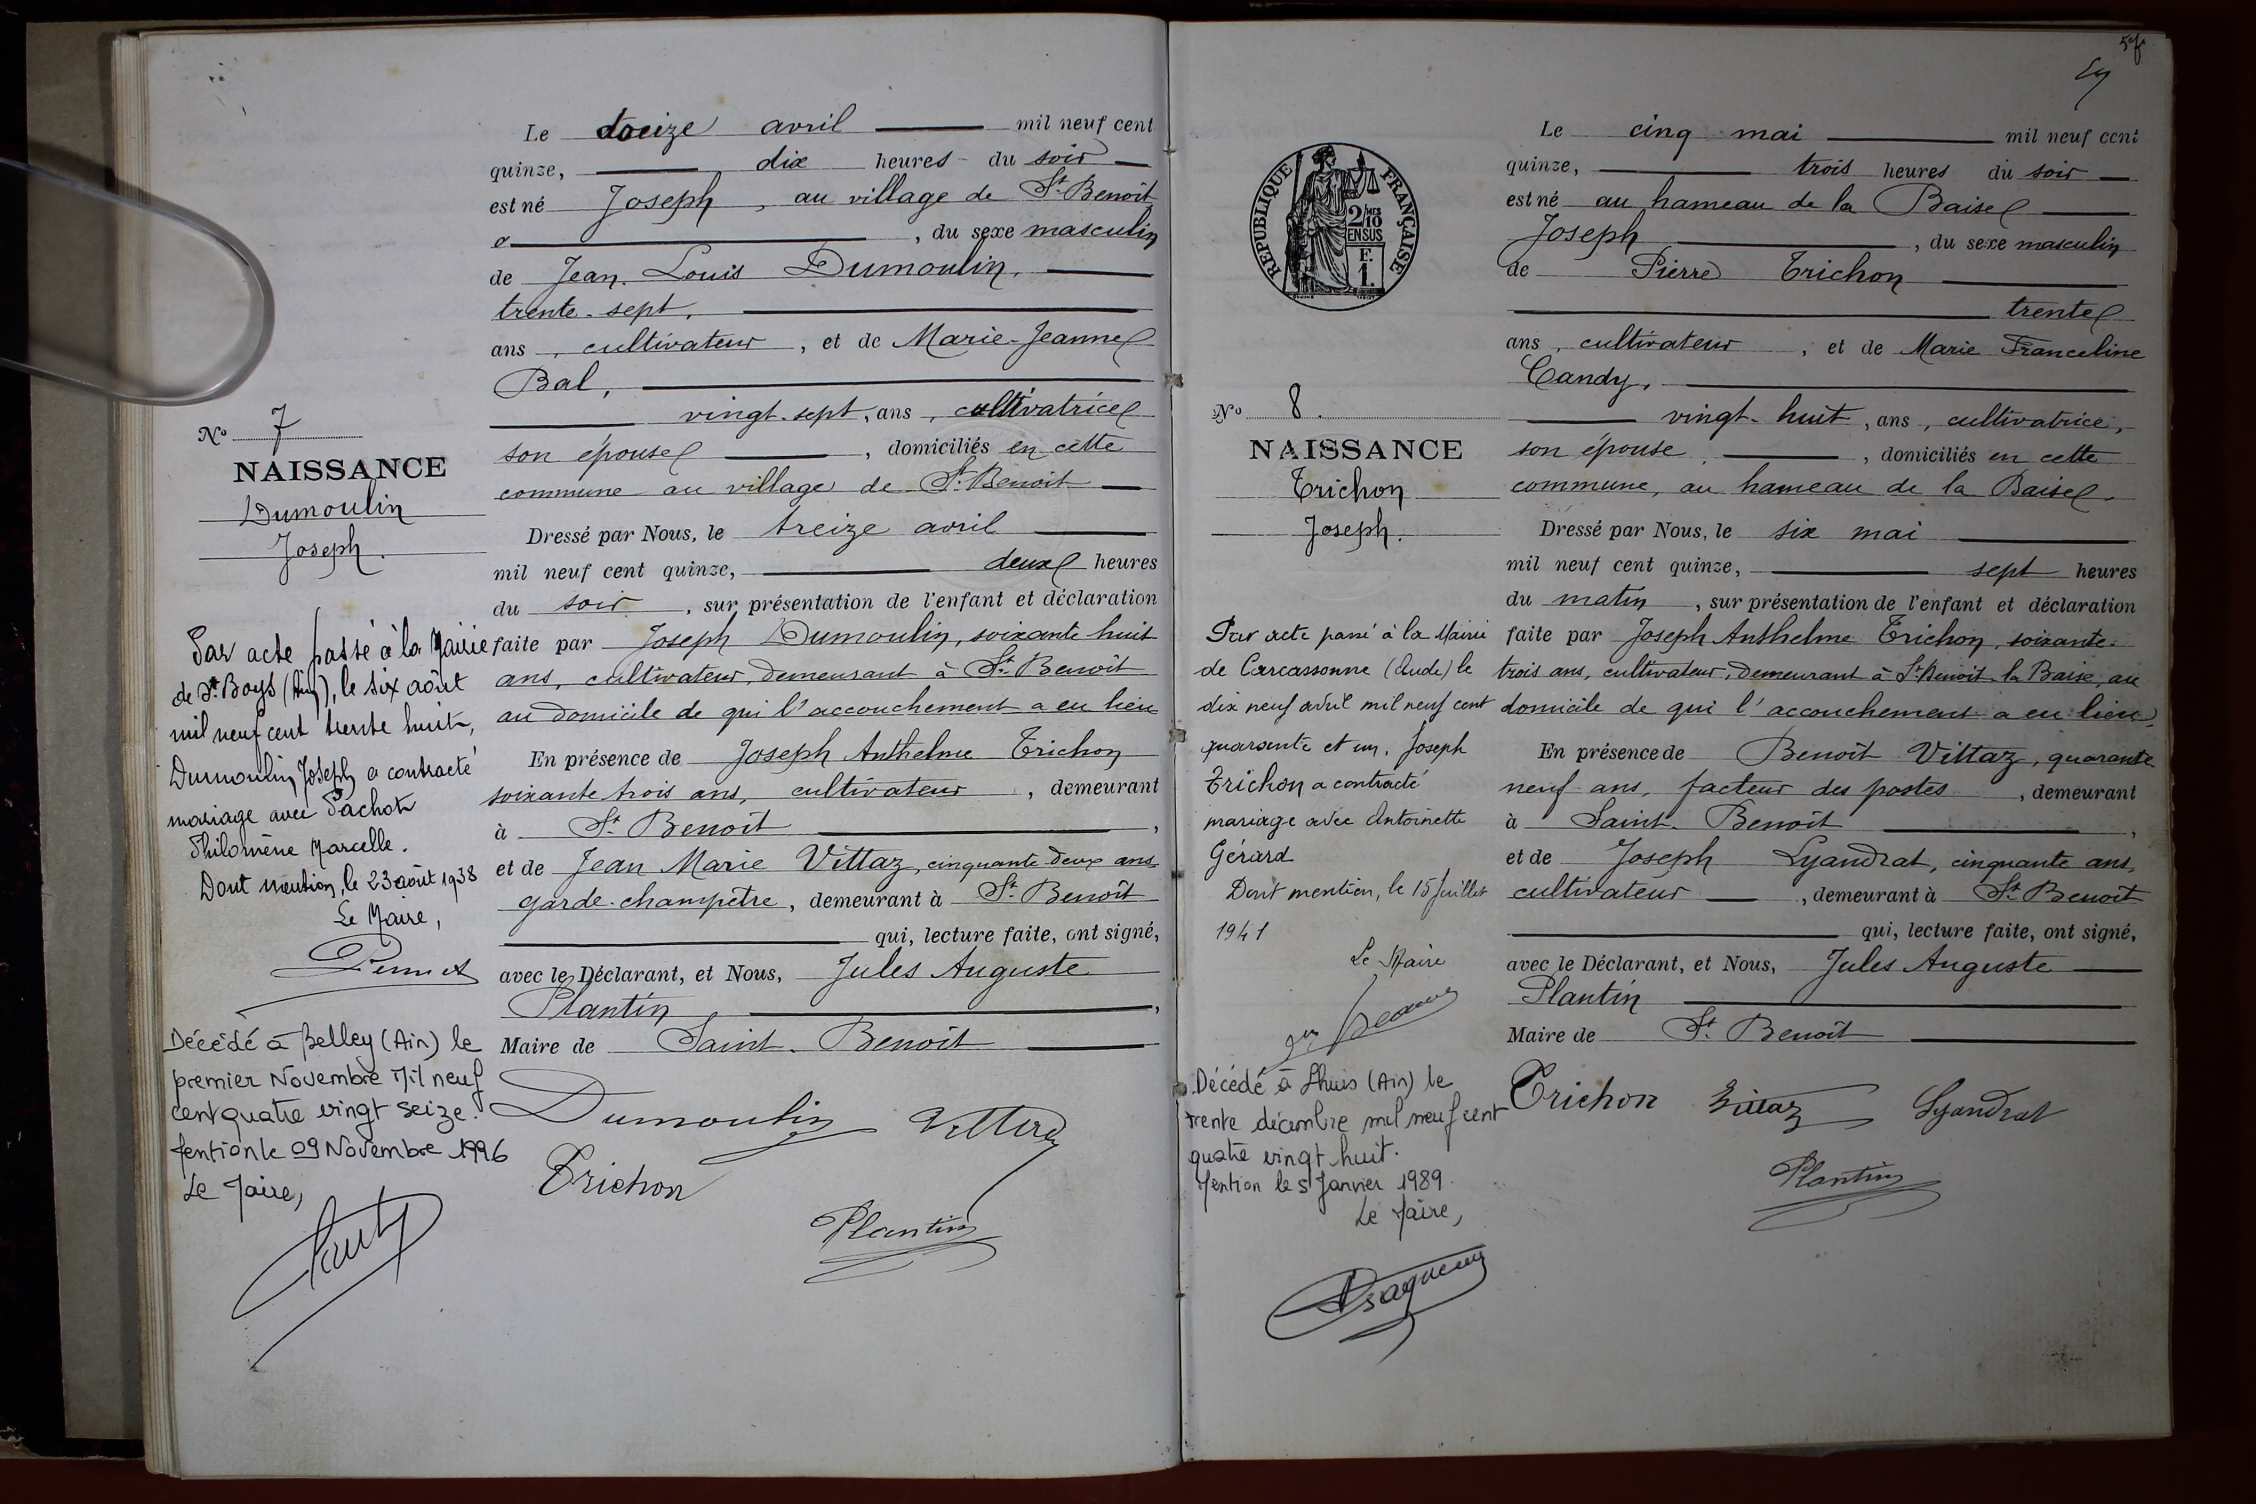 Le douze avril mil neuf cent
quinze, dix heures du soir
est né Joseph, au village de St. Benoit
, du sexe masculin
de Jean Louis Dumoulin,
trente-sept,
ans, cultivateur, et de Marie-Jeanne
Bal,
vingt-sept, ans, cultivatrice
son épouse, domiciliés en cette
commune au village de St. Benoit
Dressé par Nous, le treize avril
mil neuf cent quinze, deux heures
du soir, sur présentation de l'enfant et déclaration
faite par Joseph Dumoulin, soixante huit
ans, cultivateur, demeurant à St. Benoit
au domicile de qui l'accouchement a eu lieu
En présence de Joseph Anthelme Trichon
soixante trois ans, cultivateur, demeurant
à St. Benoit,
et de Jean Marie Vittaz, cinquante deux ans
garde-champêtre, demeurant à St. Benoit
qui, lecture faite, ont signé,
avec le Déclarant, et Nous, Jules Auguste
Plantin,
Maire de Saint-Benoit
Dumoulin Vittaz
Trichon
Plantin
No 7
NAISSANCE
Dumoulin
Joseph.
Par acte passé à la Mairie
de St. Boys (Ain), le six août
mil neuf cent trente huit,
Dumoulin Joseph a contracté
mariage avec Pachot
Philomène Marcelle.
Dont mention, le 23 août 1938
Le Maire,
Décédé à Belley (Ain) le
premier Novembre Mil neuf
cent quatre vingt seize.
Mention le 09 Novembre 1996
Le Maire,
57
REPUBLIQUE FRANÇAISE
2/10
EN SUS
F.
1.
No 8.
NAISSANCE
Trichon
Joseph.
Par acte passé à la Mairie
de Carcassonne (Aude) le
dix neuf avril mil neuf cent
quarante et un, Joseph
Trichon a contracté
mariage avec Antoinette
Gérard
Dont mention, le 15 Juillet
1941
Le Maire
Décédé à Lhuis (Ain) le
trente décembre mil neuf cent
quatre vingt huit.
Mention le 5 Janvier 1989.
Le Maire,
Le cinq mai mil neuf cent
quinze, trois heures du soir
est né au hameau de la Baise
Joseph, du sexe masculin
de Pierre Trichon
trente
ans, cultivateur, et de Marie Franceline
Candy,
vingt-huit, ans, cultivatrice,
son épouse, domiciliés en cette
commune, au hameau de la Baise.
Dressé par Nous, le six mai
mil neuf cent quinze, sept heures
du matin, sur présentation de l'enfant et déclaration
faite par Joseph Anthelme Trichon, soixante-
trois ans, cultivateur, demeurant à St. Benoit-la Baise, au
domicile de qui l'accouchement a eu lieu
En présence de Benoit Vittaz, quarante
neuf ans, facteur des postes, demeurant
à Saint-Benoit,
et de Joseph Lyandrat, cinquante ans,
cultivateur, demeurant à St. Benoit
qui, lecture faite, ont signé,
avec le Déclarant, et Nous, Jules Auguste
Plantin
Maire de St. Benoit
Trichon Vittaz Lyandrat
Plantin